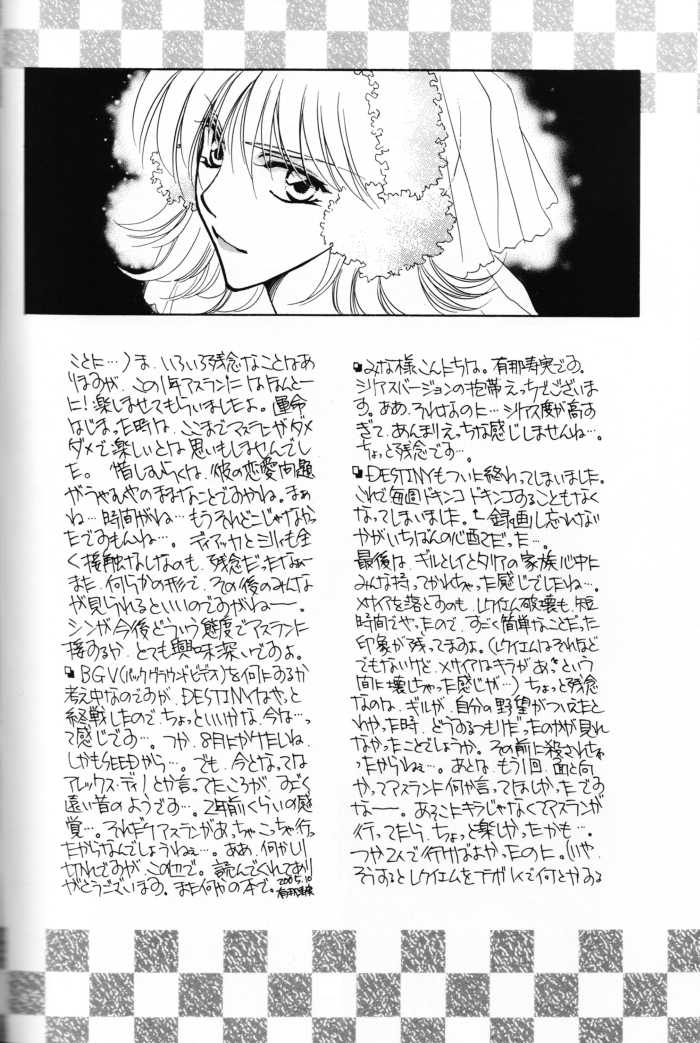 みな様こんにちは。有那寿実です。
シリアスバージョンの携帯えっちでございま
す。ああ、それなのに…シリアス度が高す
ぎて、あんまりえっちな感じしませんね…。
ちょっと残念です…。
DESTINYもついに終わってしまいました。
これで毎週ドキンコドキンコすることもなく
なってしまいました。←録画し忘れない
かがいちばんの心配でだった…。
最後は、ギルとレイとタリアの家族心中に
みんな持ってかれちゃった感じでしたね…。
メサイアを落とすのも、レクイエム破壊も、短
時間でやったので、すごく簡単なことだった
印象が残ってますよ。(レクイエムはそれほど
でもないけど、メサイアはキラがあっという
間に壊しちゃった感じが…)ちょっと残念
なのは、ギルが、自分の野望がついえたと
わかった時、どうするつもりだったのかが見れ
なかったことでしょうか。その前に殺されちゃ
ったからねぇ…。あとは、もう1回、面と向
かってアスランに何か言ってほしかったです
なー。あそこにキラじゃなくてアスランが
行ってたら、ちょっと楽しかったかも…。
つか2人で行けばよかったのに。(いや、
そうするとレクイエムをゴチャゴチャで何とかする
ことに…)ま、いろいろ残念なことはあ
りますが、この1年アスランにはほんとー
に!楽しませてもらいましたよ。運命
はじまった時は、ここまでアスランがダメ
ダメで楽しいとは思いもしませんでし
た。惜しむらくは、彼の恋愛問題
がうやむやのままなことですかね。まぁ
ね…時間がね…もうそれどこじゃなかっ
たですもんね…。ディアッカとミリィも全
く接触なしなのも、残念だったなぁー
また、何らかの形で、その後のみんな
が見られるといいのですがねー。
シンが今後どういう態度でアスランに
接するか、とても興味深いですよ。
BGV(バックグラウンドビデオ)を何にするか
考え中なのですが、DESTINYはやっと
終戦したのでちょっといいかな、今は…っ
て感じです…。つか、8月にかけたしね、
しかもSEEDから…。でも、今となっては
アレックス・ディノとか言ってたころが、すごく
遠い昔のようです…。2年前くらいの感
覚…。それだけアスランがあっちゃこっちゃ行っ
たからなんでしょうねぇ…。ああ、何かしり
切れですが、この辺で。読んでくれてあり
がとうございます。また何かの本で。2005.10
有那寿実